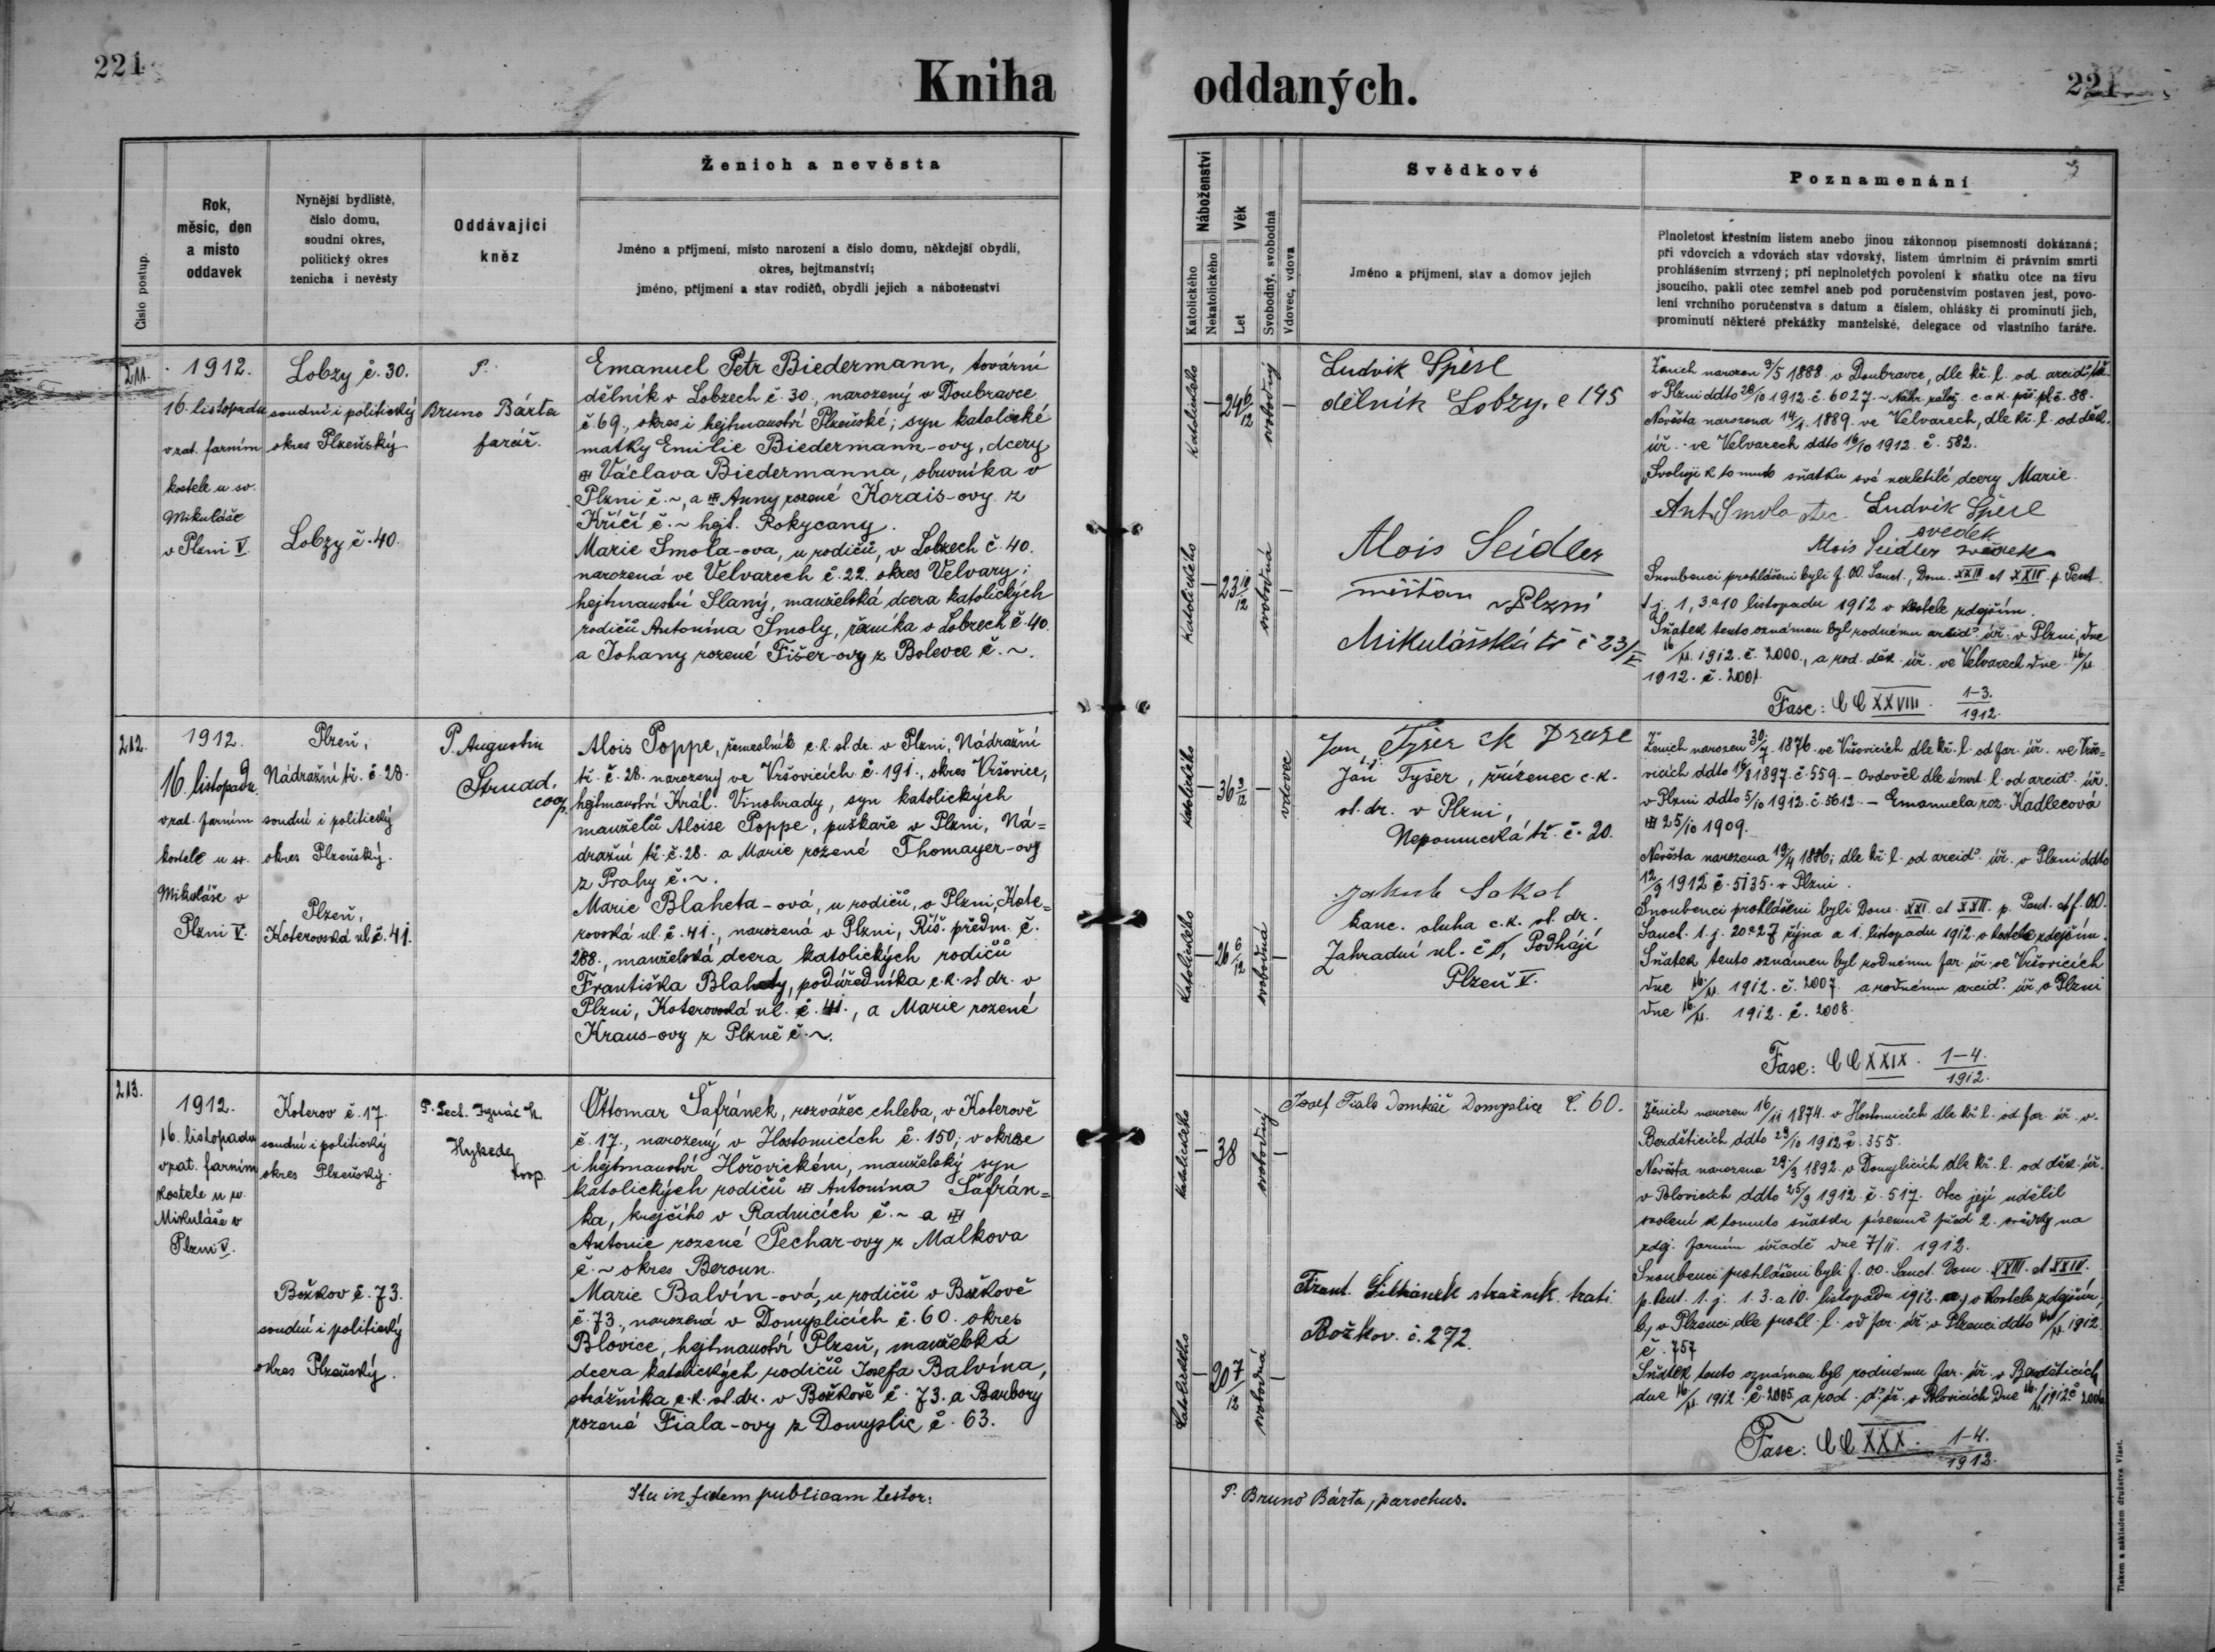 221
Kniha
oddaných.
221
Číslo postup.
Rok,
měsíc, den
a místo
oddavek
Nynější bydliště,
číslo domu,
soudní okres,
politický okres
ženicha i nevěsty
Oddávající
kněz
Ženich a nevěsta
Jméno a příjmení, místo narození a číslo domu, někdejší obydlí,
okres, hejtmanství;
jméno, příjmení a stav rodičů, obydlí jejich a náboženství
Náboženství
Katolického
Nekatolického
Věk
Let
Svobodný, svobodná
Vdovec, vdova
Svědkové
Jméno a příjmení, stav a domov jejich
Poznamenání
Plnoletost křestním listem anebo jinou zákonnou písemností dokázaná;
při vdovcích a vdovách stav vdovský, listem úmrtním či právním smrti
prohlášením stvrzený; při neplnoletých povolení k sňatku otce na živu
jsoucího, pakli otec zemřel aneb pod poručenstvím postaven jest, povo-
lení vrchního poručenstva s datum a číslem, ohlášky či prominutí jich,
prominutí některé překážky manželské, delegace od vlastního faráře.
211.
1912.
16. listopadu
v zat. farním
kostele u sv.
Mikuláše
v Plzni V.
Lobzy č. 30.
soudní i politický
okres Plzeňský
Lobzy č. 40.
P.
Bruno Bárta
farář.
Emanuel Petr Biedermann, tovární
dělník v Lobzech č. 30., narozený v Doubravce
č. 69., okres i hejtmanství Plzeňské; syn katolické
matky Emilie Biedermann-ovy, dcery
Václava Biedermanna, obuvníka v
Plzni č. ~, a Anny rozené Korais-ovy z
Kříčí č. ~ hejt. Rokycany.
Marie Smola-ova, u rodičů, v Lobzech č. 40.
narozená ve Velvarech č. 22. okres Velvary;
hejtmanství Slaný, manželská dcera katolických
rodičů Antonína Smoly, řezníka v Lobzech č. 40.
a Johany rozené Fišer-ovy z Bolevce č. ~.
katolického
24 6/12
svobodný
katolického
23 10/12
svobodná
Ludvik Špésl
dělník Lobzy. č 145
Alois Seidler
měštan v Plzni
Mikulášská tř č 23/V
Ženich narozen 9/5 1888 v Doubravce, dle kř. l. od arcid. úř.
v Plzni ddto 28/10 1912 č. 6027. ~ Náhr. zálož. c. a k. pěš. pl. č. 88.
Nevěsta narozena 14/1 1889. ve Velvarech, dle kř. l. od děk.
úř. ve Velvarech ddto 16/10 1912. č. 582.
Svoluji k tomuto sňatku své nezletilé dcery Marie
Ant. Smola otec Ludvik Špésl
svedek
Alois Seidler svědek
Snoubenci prohlášeni byli f. OO. Sanct., Dom. XXIII et XXIV p. Pent.
t. j. 1, 3 a 10 listopadu 1912 v kostele zdejším.
Sňatek tento oznámen byl rodnému arcid. úř. v Plzni, dne
16/11. 1912. č. 2000., a rod. děk. úř. ve Velvarech dne 16/11
1912. č. 2001.
Fasc: CC XXVIII. 1-3. 1912.
212.
1912.
16. listopadu
v zat. farním
kostele u sv.
Mikuláše v
Plzni V.
Plzeň,
Nádražní tř. č. 28.
soudní i politický
okres Plzeňský.
Plzeň,
Koterovská ul. č. 41.
P. Augustin
Strnad.
coop.
Alois Poppe, řemeslník c. k. st. dr. v Plzni, Nádražní
tř. č. 28. narozený ve Vršovicích č. 191., okres Vršovice,
hejtmanství Král. Vinohrady, syn katolických
manželů Aloise Poppe, puškaře v Plzni, Ná=
dražní tř. č. 28. a Marie rozené Thomayer-ovy
z Prahy č. ~.
Marie Blaheta-ová, u rodičů, v Plzni, Kote=
rovská ul. č. 41., narozená v Plzni, Říš. předm. č.
288., manželská dcera katolických rodičů
Františka Blahety, podúředníka c. k. st. dr. v
Plzni, Koterovská ul. č. 41., a Marie rozené
Kraus-ovy z Plzně č. ~.
katolického
36 3/12
vdovec
katolického
26 6/12
svobodná
Jan Tyšer ck Draze
t. j.
Jan Tyšer, zřízenec c. k.
st. dr. v Plzni,
Nepomucká tř. č. 20.
Jakub Sokol
kanc. sluha c. k. st. dr.
Zahradní ul. č 1, Podhájí
Plzeň V.
Ženich narozen 30/7. 1876. ve Vršovicích dle kř. l. od far. úř. ve Vršo=
vicích ddto 16/8 1897. č. 559. - Ovdověl dle úmrt. l. od arcid. úř.
v Plzni ddto 5/10 1912. č. 5612. - Emanuela roz. Kadlecová
25/10 1909.
Nevěsta narozena 19/4 1886; dle kř. l. od arcid. úř. v Plzni ddto
12/9 1912 č. 5135. v Plzni.
Snoubenci prohlášeni byli Dom. XXI. et XXII. p. Pent. et f. OO.
Sanct. t. j. 20 a 27 října a 1. listopadu 1912 v kostele zdejším.
Sňatek tento oznámen byl rodnému far. úř. ve Vršovicích
dne 16/11. 1912. č. 2007. a rodnému arcid. úř. v Plzni
dne 16/11. 1912. č. 2008.
Fasc: CC XXIX. 1-4. 1912.
213.
1912.
16. listopadu
v zat. farním
kostele u sv.
Mikuláše v
Plzni V.
Koterov č. 17.
soudní i politický
okres Plzeňský.
Božkov č. 73.
soudní i politický
okres Plzeňský.
P. Hykedej
koop.
Ottomar Šafránek, rozvážeč chleba, v Koterově
č. 17., narozený v Hostomicích č. 150; v okrese
i hejtmanství Hořovickém, manželský syn
katolických rodičů Antonína Šafrán=
ka, krejčího v Radnicích č. ~ a
Antonie rozené Pechar-ovy z Malkova
č. ~ okres Beroun.
Marie Balvín-ová, u rodičů v Božkově
č. 73., narozená v Domyslicích č. 60. okres
Blovice, hejtmanství Plzeň, manželská
dcera katolických rodičů Josefa Balvína,
strážníka c. k. st. dr. v Božkově č. 73. a Barbory
rozené Fiala-ovy z Domyslic č. 63.
katolického
38
svobodný
katolického
20 7/12
svobodná
Josef Fiala Domkář Domyslice č. 60.
Frant. stražnik trati
Božkov. č. 272.
Ženich narozen 16/11 1874. v Hostomicích dle kř. l. od far. úř. v.
Bezděticích ddto 29/10 1912 č. 355.
Nevěsta narozena 29/3 1892. v Domyslicích dle kř. l. od děk. úř.
v Blovicích ddto 25/9 1912 č. 517. Otec její udělil
svolení k tomuto sňatku písemně před 2. svědky na
zdej. farním úřadě dne 7/11. 1912.
Snoubenci prohlášeni byli f. OO. Sanct. Dom. XXIII. et XXIV.
p. Pent. t. j. 1. 3. a 10. listopadu 1912. a, v kostele zdejším,
b, v Plzenci dle prohl. l. od far. úř. v Plzenci ddto 1912
č. 757
Sňatek tento oznámen byl rodnému far. úř. v Bezděticích
dne 16/11. 1912. č. 2005 a rod. d. úř. v Blovicích dne 16/11. 1912 č 2006
Fasc: CC XXX. 1-4. 1912.
Ita in fidem publicam testor:
P. Bruno Bárta, parochus.
Tiskem a nákladem družstva Vlast.